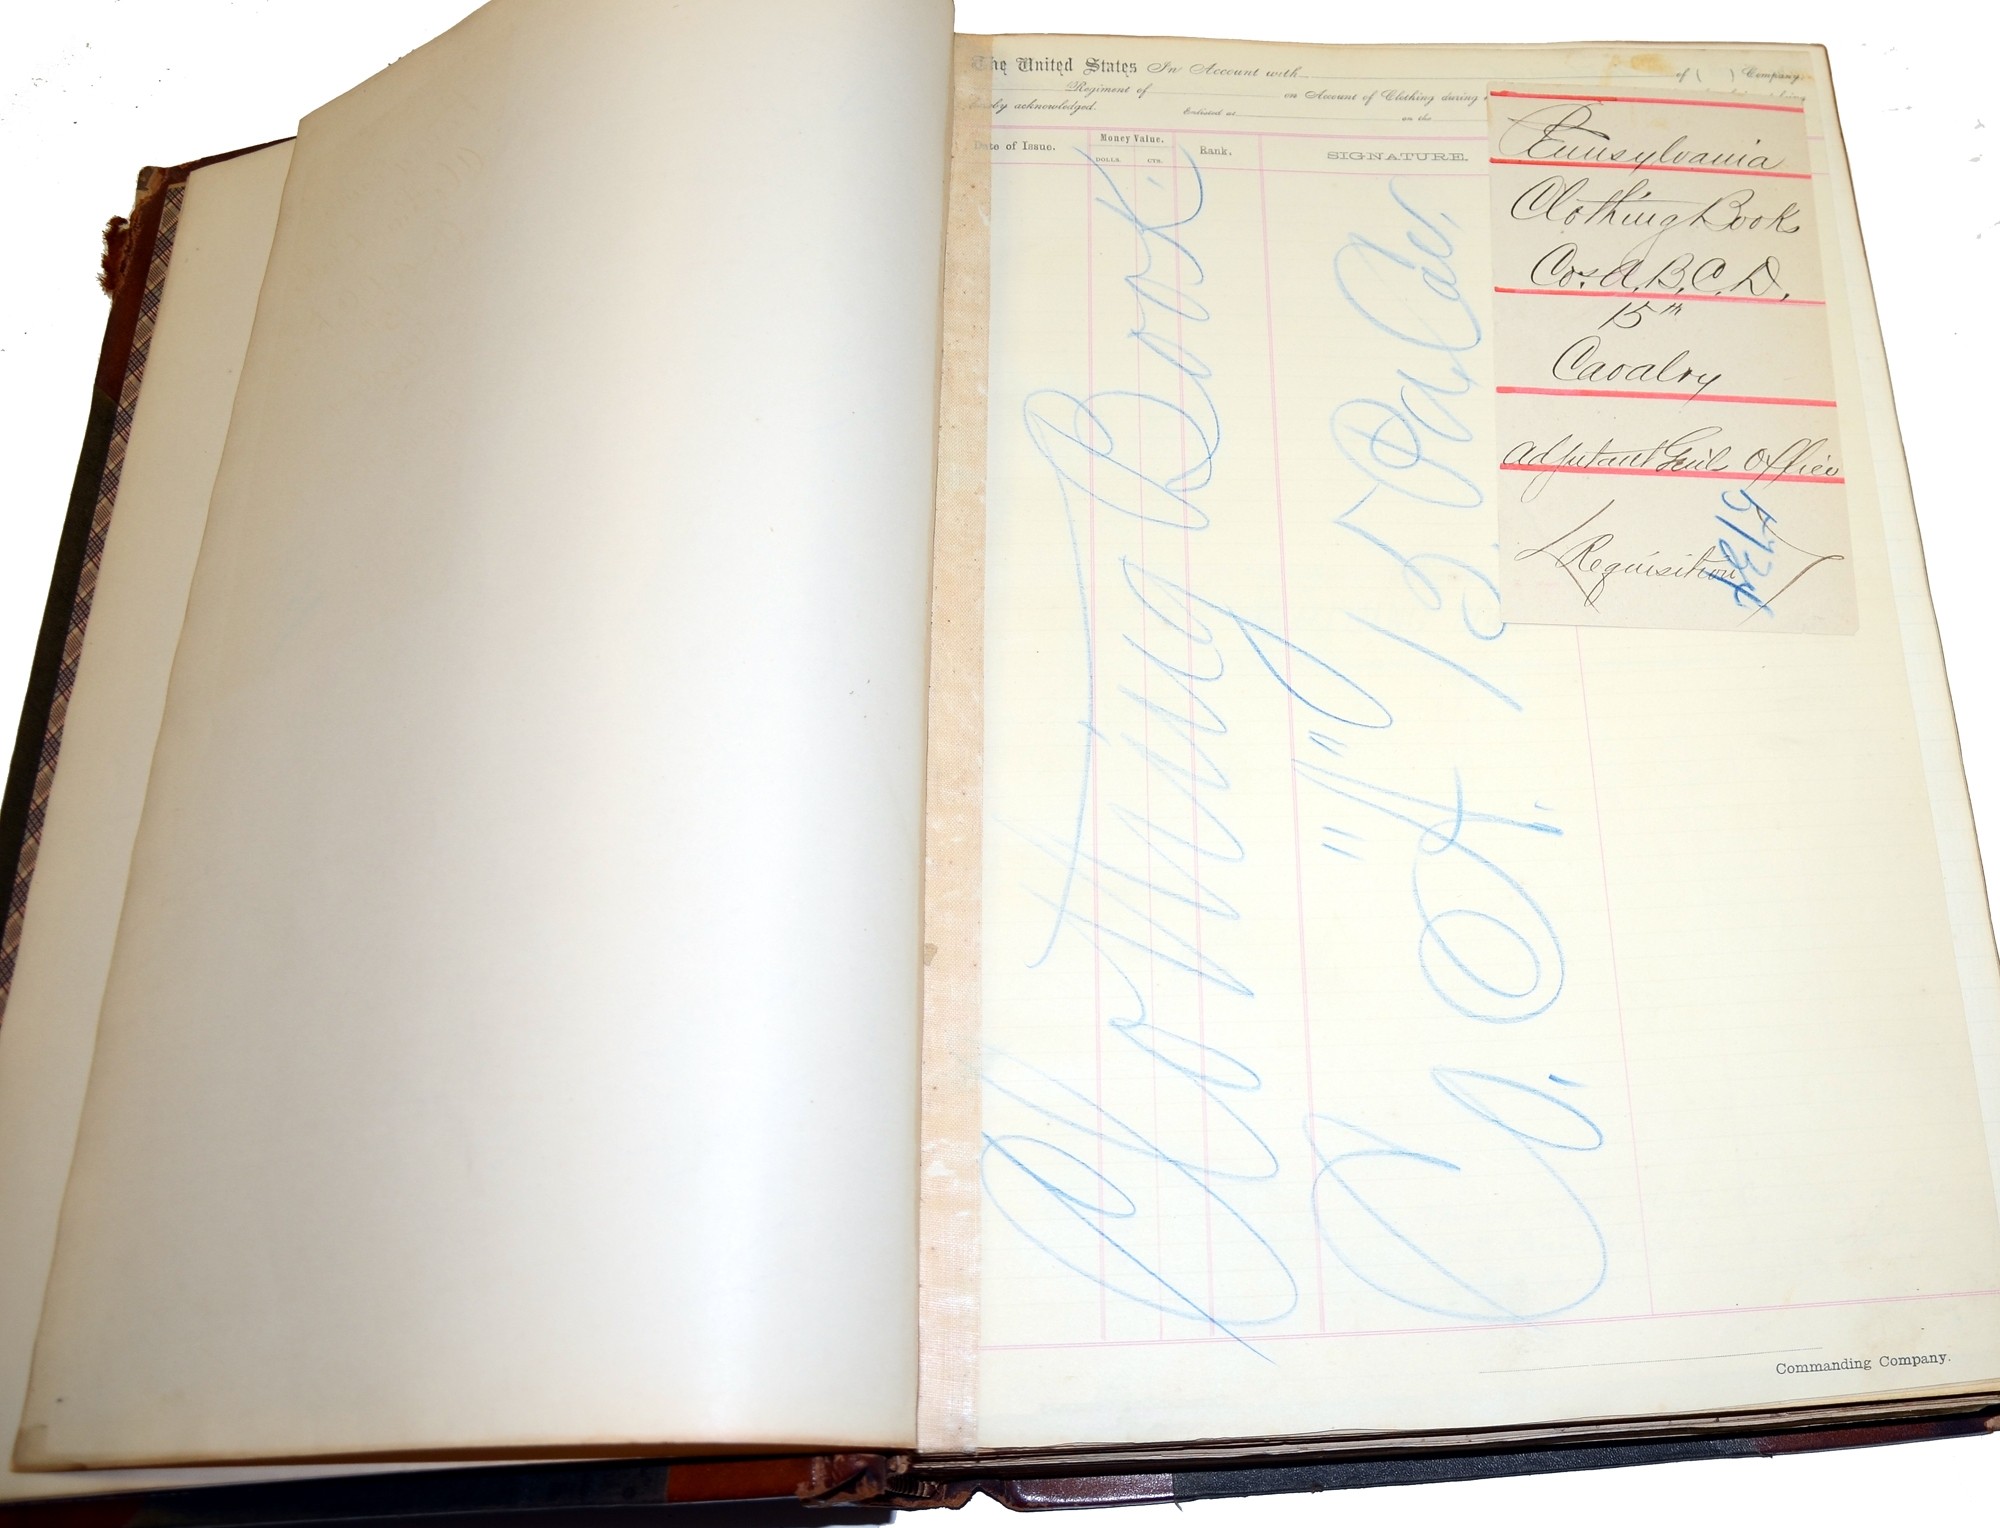 The United States In Account with of ( ) Company,
Regiment of on Account of Clothing during
hereby acknowledged. Enlisted at on the
Date of Issue. Money Value. Rank. SIGNATURE.
DOLLS. CTS.
Pennsylvania
Clothing Book
Cos. A. B. C. D.
15th
Cavalry
Adjutant Genls Office
Requisition
5734
Clothing Book.
Co. "A" 15. Pa. Cav.
Co. A.
Commanding Company.